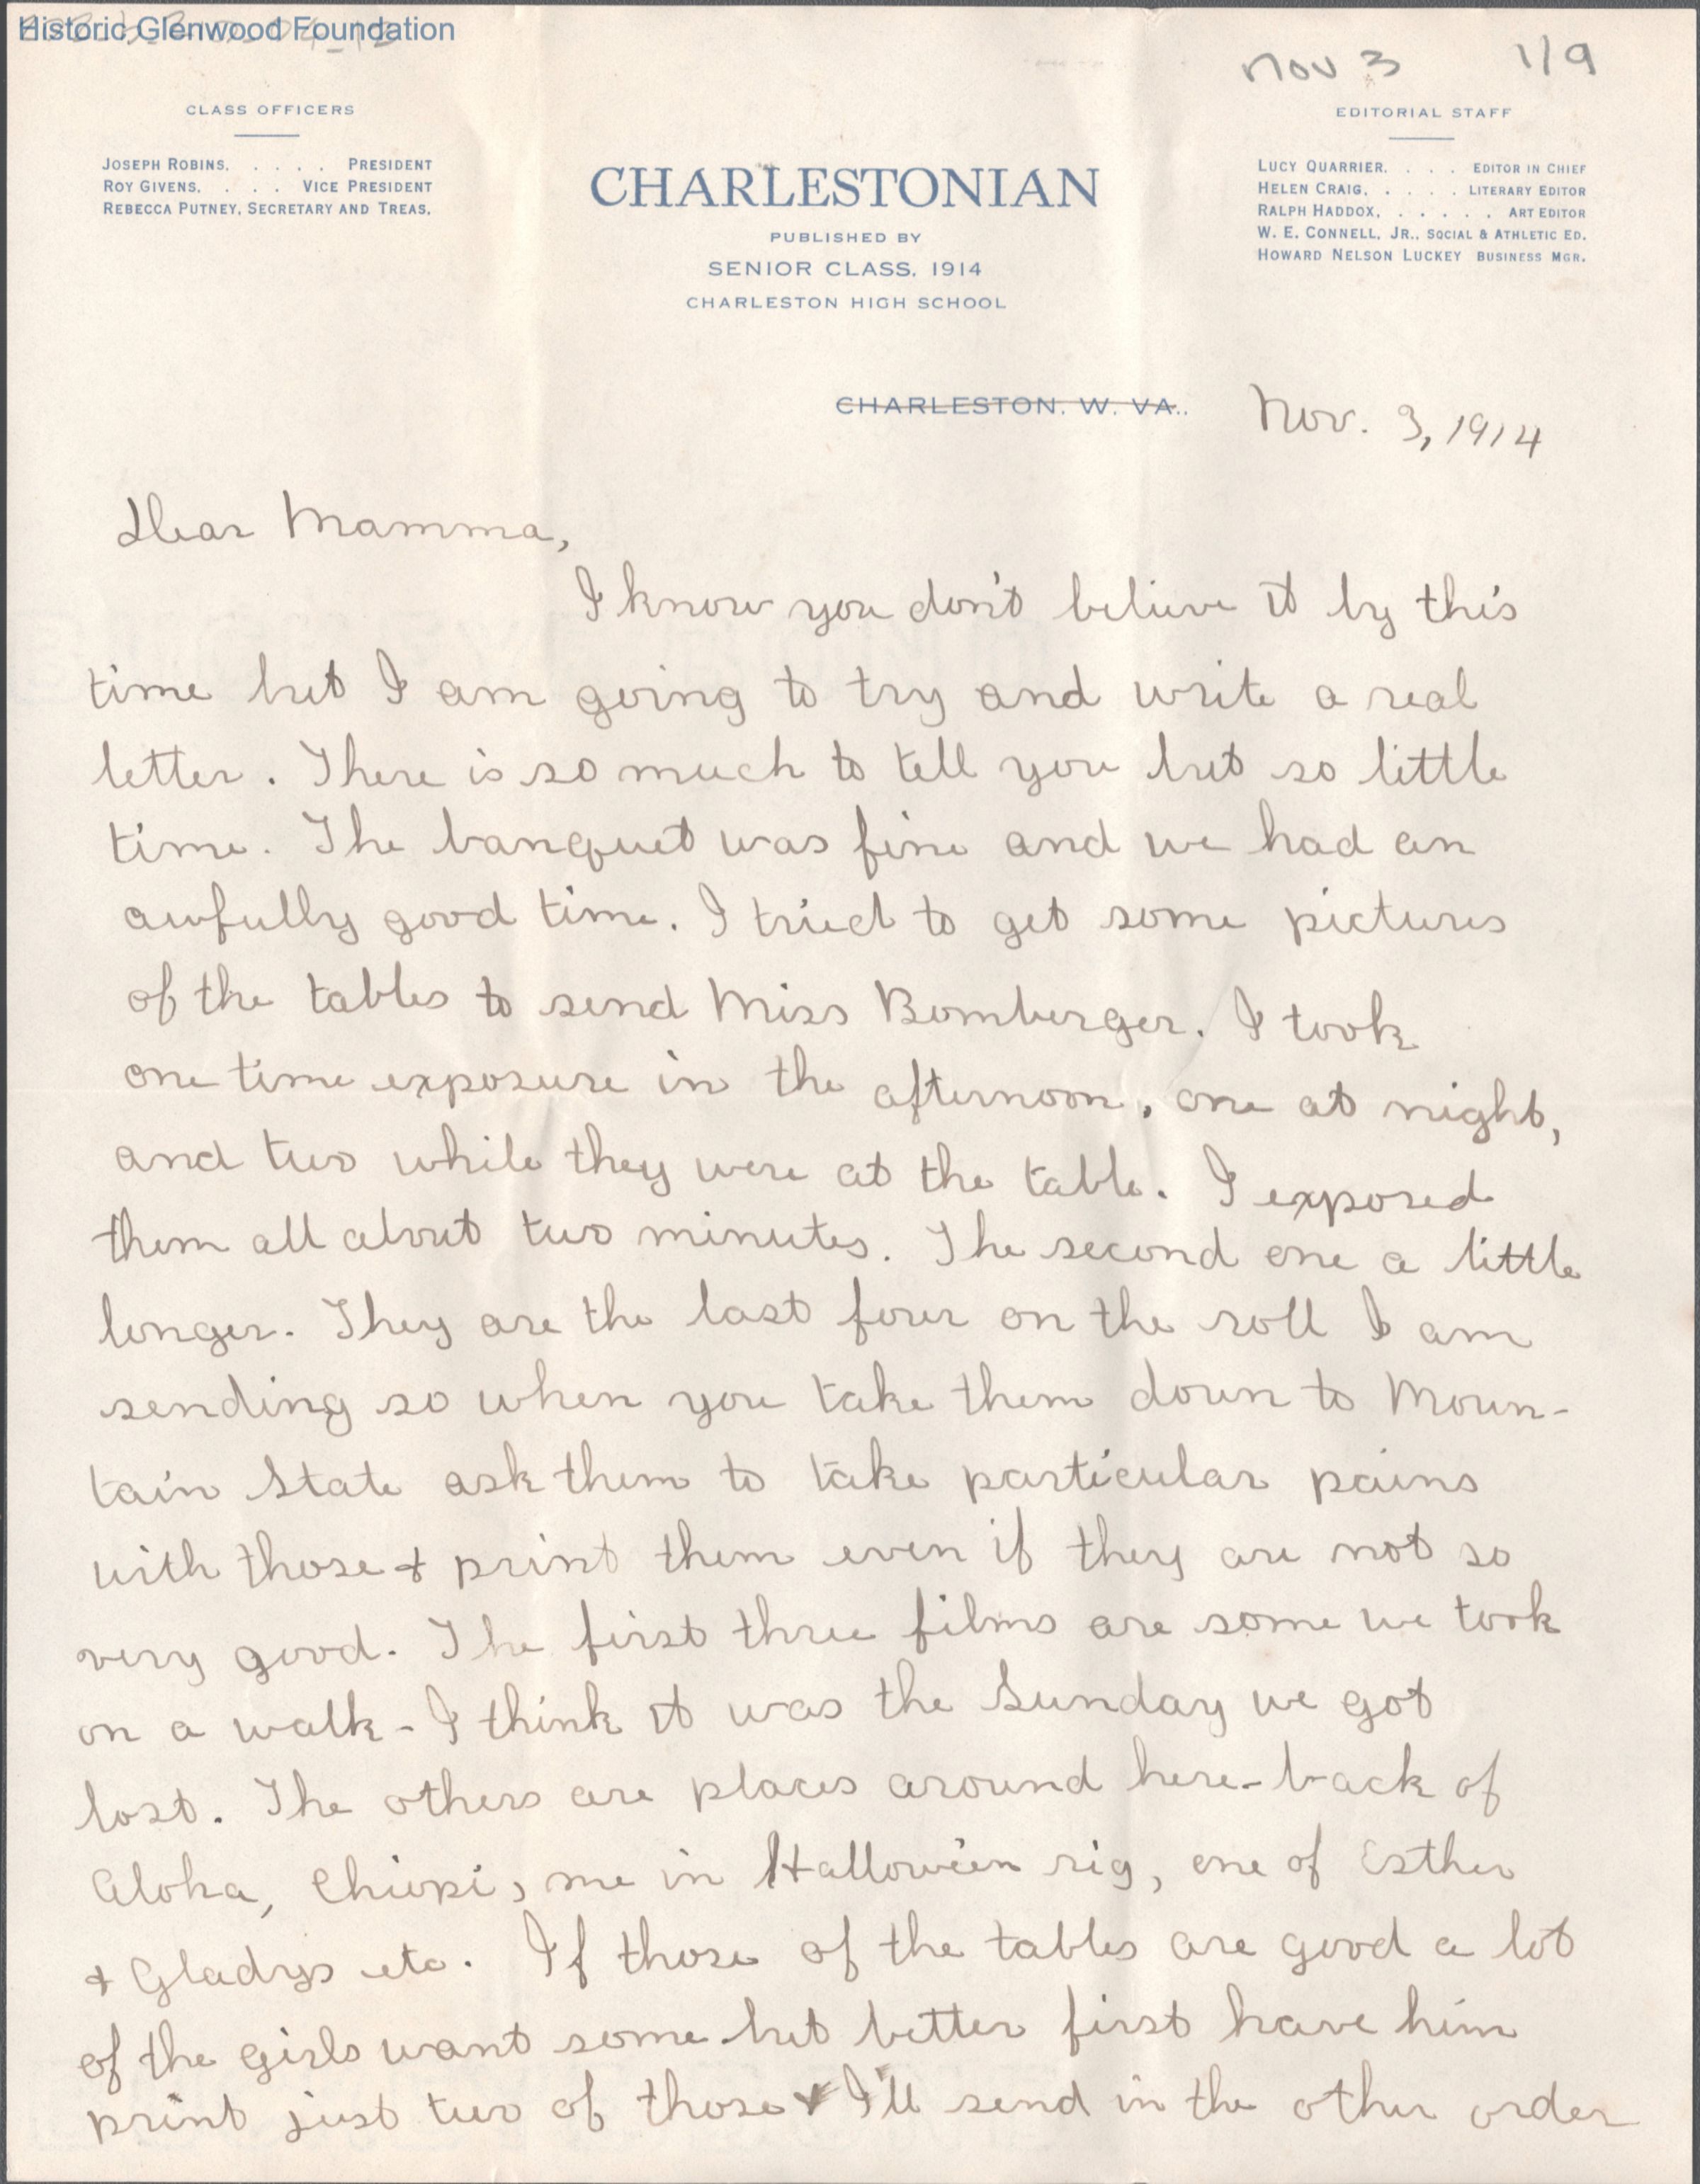 Historic Glenwood Foundation
Nov 3 1/9
CLASS OFFICERS
JOSEPH ROBINS. . . . . PRESIDENT
ROY GIVENS. . . . VICE PRESIDENT
REBECCA PUTNEY, SECRETARY AND TREAS.
CHARLESTONIAN
PUBLISHED BY
SENIOR CLASS. 1914
CHARLESTON HIGH SCHOOL
EDITORIAL STAFF
LUCY QUARRIER. . . . EDITOR IN CHIEF
HELEN CRAIG. . . . . LITERARY EDITOR
RALPH HADDOX. . . . . . ART EDITOR
W. E. CONNELL, JR., SOCIAL & ATHLETIC ED.
HOWARD NELSON LUCKEY BUSINESS MGR.
CHARLESTON. W. VA.. Nov. 3, 1914
Dear Mamma,
I know you don't believe it by this
time but I am going to try and write a real
letter. There is so much to tell you but so little
time. The banquet was fine and we had an
awfully good time. I tried to get some pictures
of the tables to send Miss Bomberger. I took
one time exposure in the afternoon, one at night,
and two while they were at the table. I exposed
them all about two minutes. The second one a little
longer. They are the last four on the roll I am
sending so when you take them down to Moun-
tain State ask them to take particular pains
with those & print them even if they are not so
very good. The first three films are some we took
on a walk - I think it was the Sunday we got
lost. The others are places around here - back of
Aloha, Chiopi, me in Halloween rig, one of Esther
& Gladys etc. If those of the tables are good a lot
of the girls want some but better first have him
print just two of those & I'll send in the other order